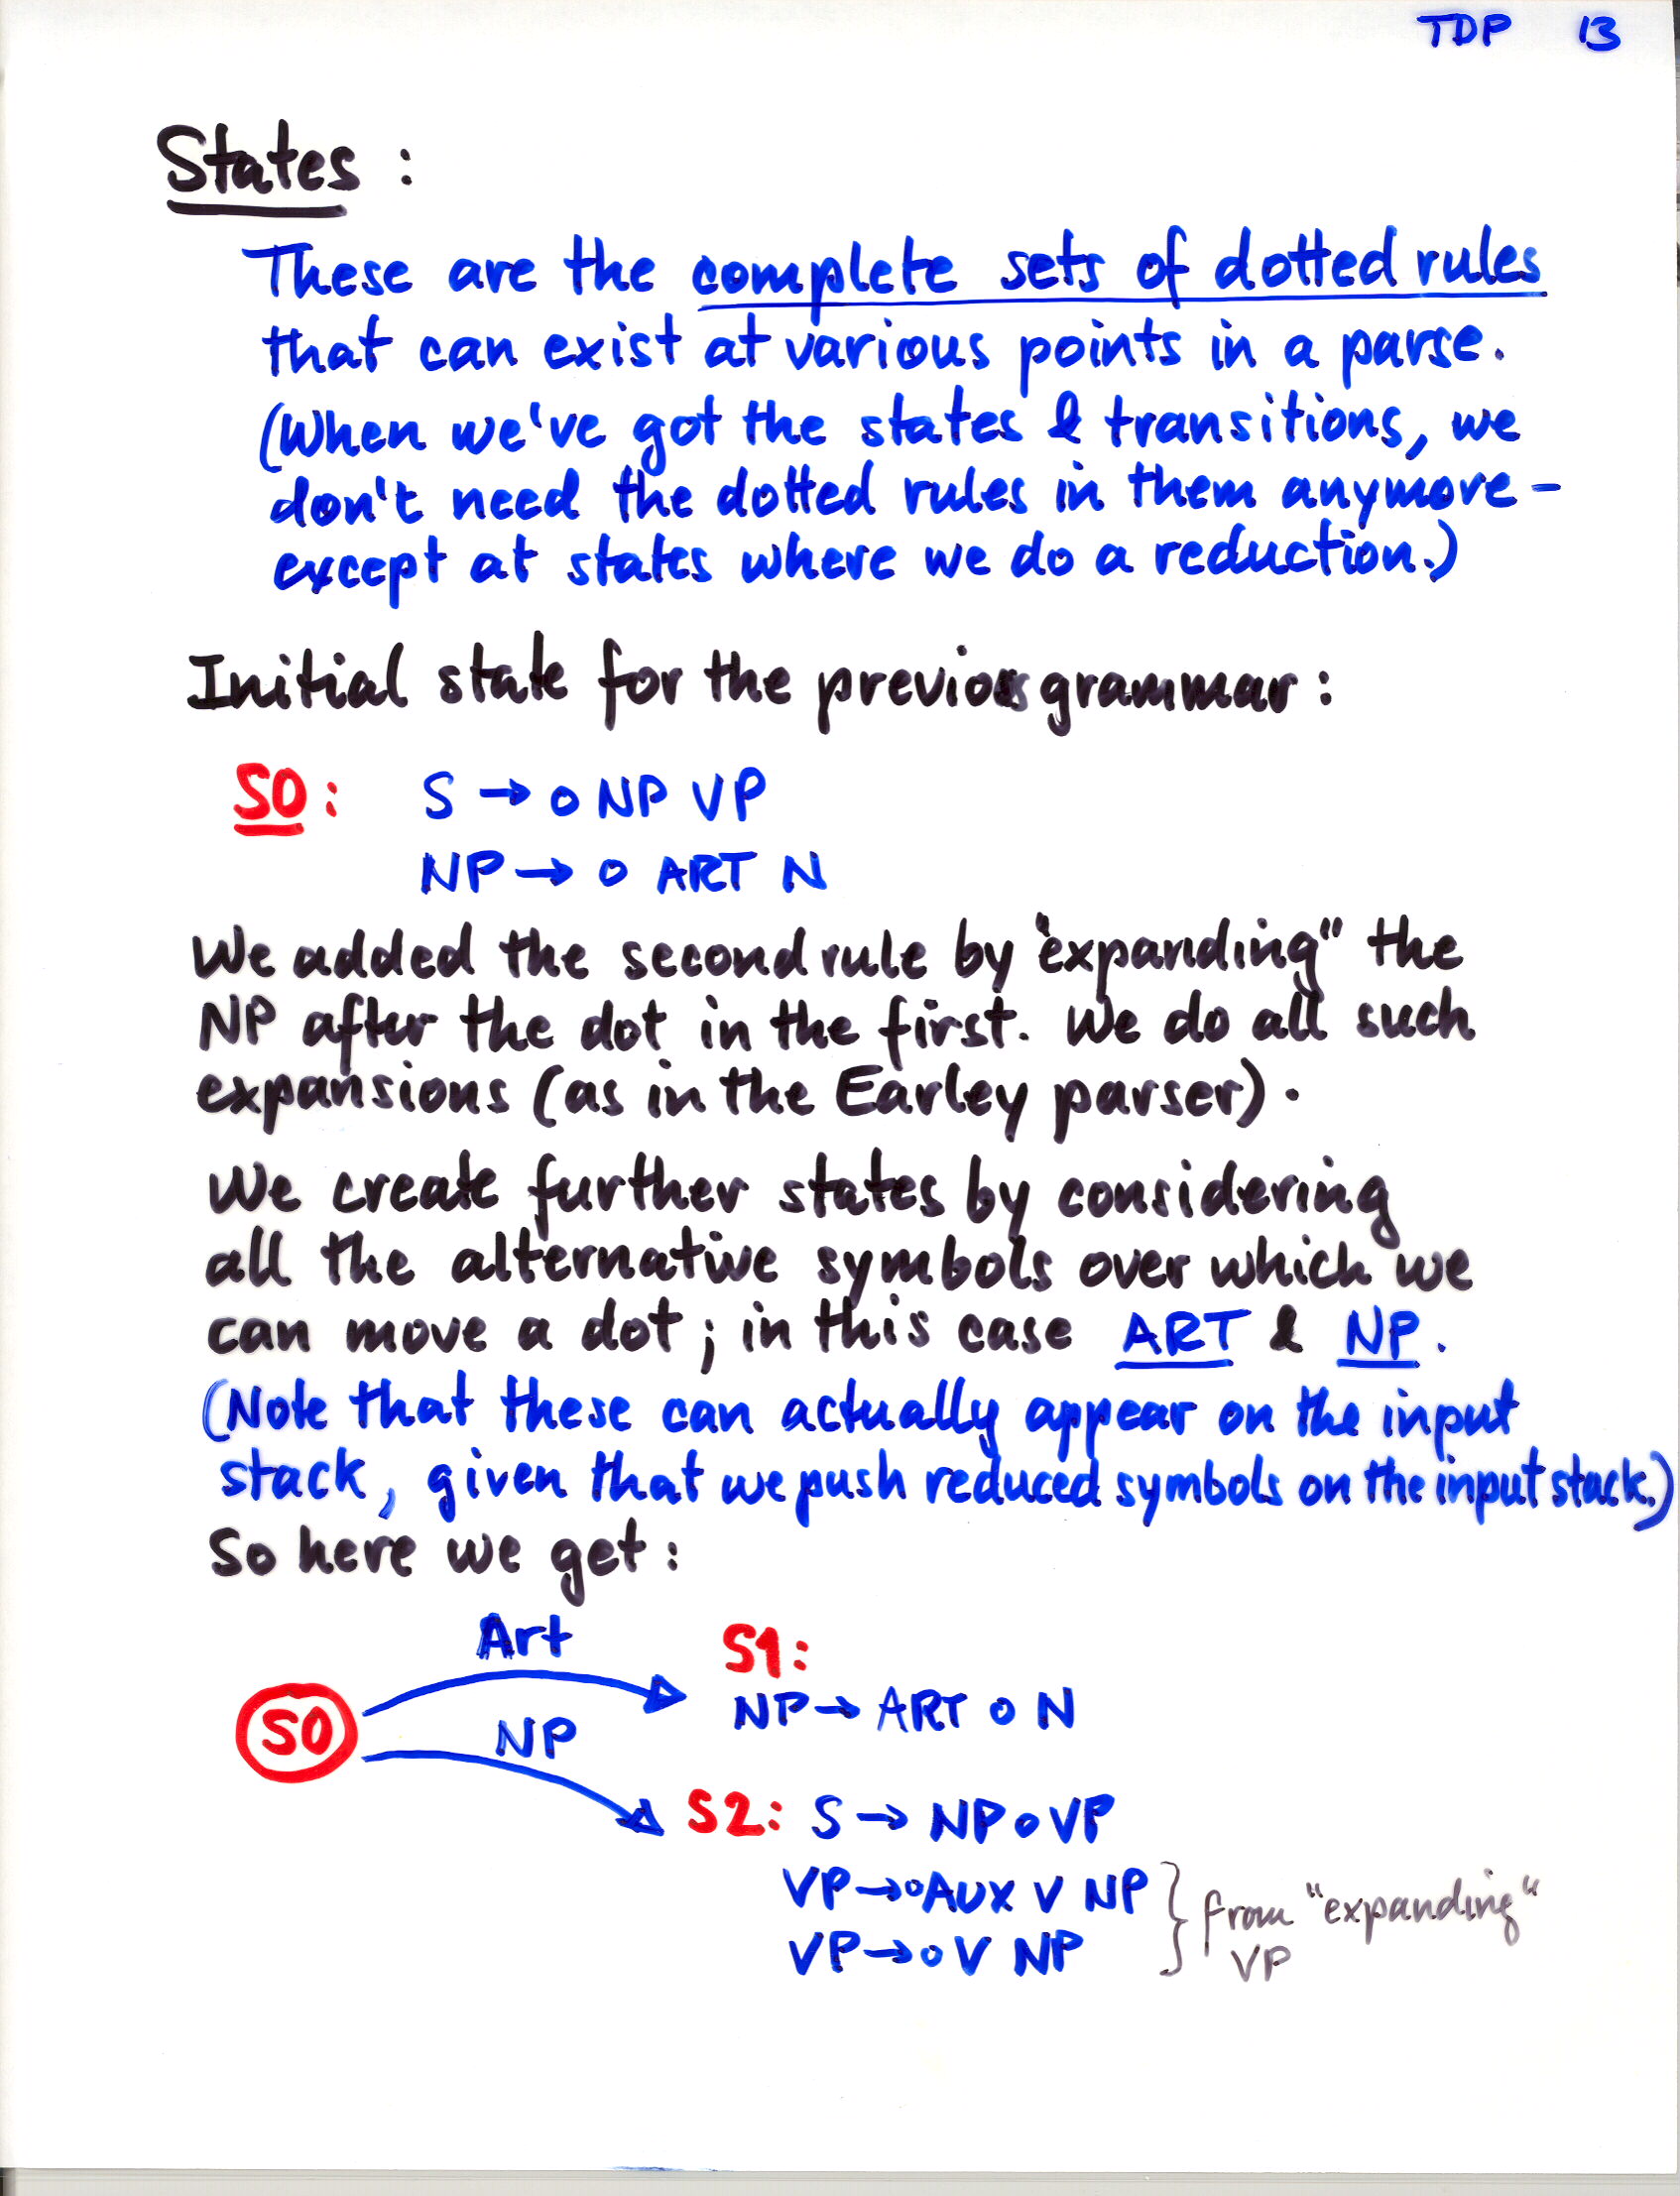 TDP 13
States :
These are the complete sets of dotted rules
that can exist at various points in a parse.
(When we've got the states & transitions, we
don't need the dotted rules in them anymore -
except at states where we do a reduction.)
Initial state for the previous grammar :
S0 : S → o NP VP
NP → o ART N
We added the second rule by "expanding" the
NP after the dot in the first. We do all such
expansions (as in the Earley parser).
We create further states by considering
all the alternative symbols over which we
can move a dot ; in this case ART & NP.
(Note that these can actually appear on the input
stack, given that we push reduced symbols on the input stack.)
So here we get :
Art
S1:
NP → ART o N
S0
NP
S2: S → NP o VP
VP → o AUX V NP
VP → o V NP
} from "expanding"
VP